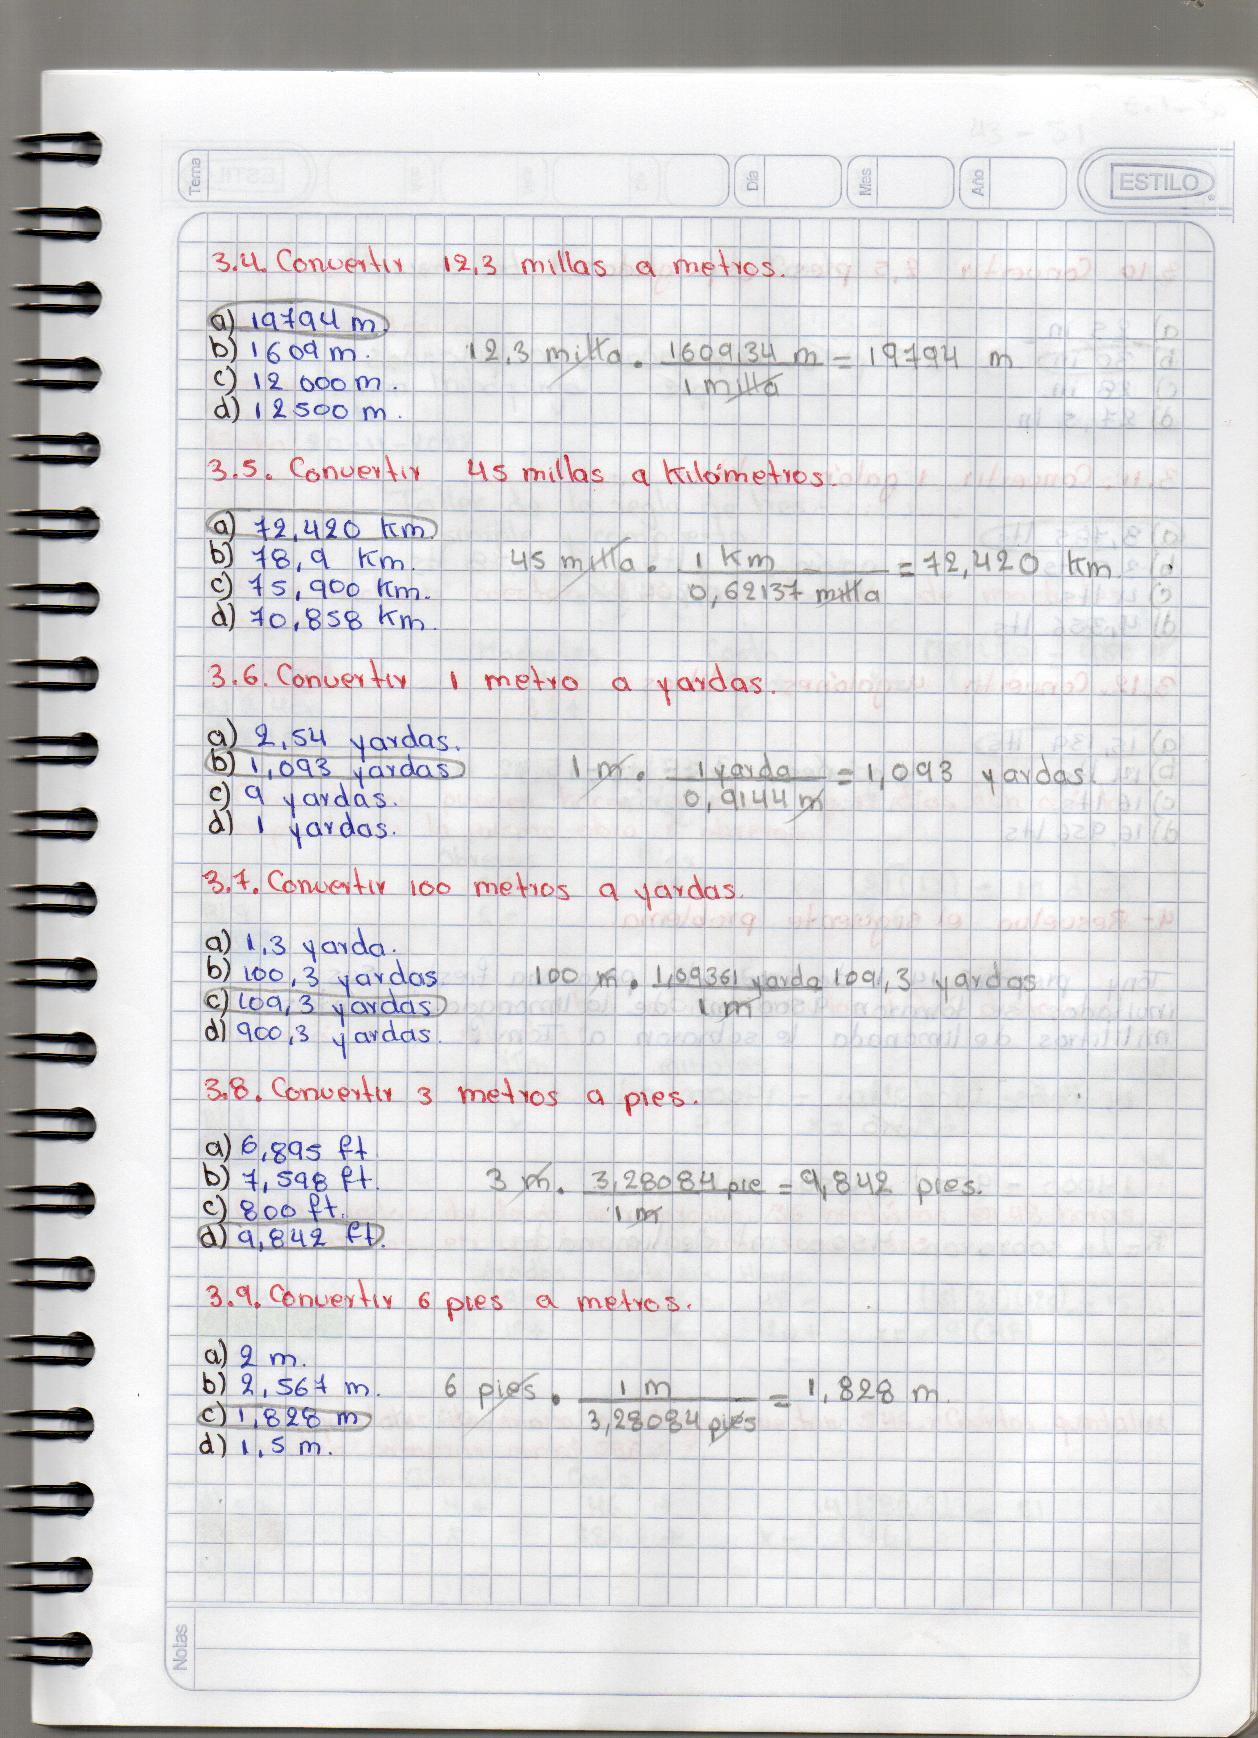 Tema
Día
Mes
Año
ESTILO
3.4. Convertir 12,3 millas a metros.
a) 19794 m
b) 1609 m. 12,3 milla . 1609,34 m = 19794 m
1 milla
c) 12 000 m.
d) 12500 m.
3.5. Convertir 45 millas a Kilómetros.
a) 72,420 Km
b) 78,9 Km. 45 milla . 1 Km = 72,420 Km
0,62137 milla
c) 75,900 Km.
d) 70,858 Km.
3.6. Convertir 1 metro a yardas.
a) 2,54 yardas.
b) 1,093 yardas 1 m . 1 yarda = 1,093 yardas.
0,9144 m
c) 9 yardas.
d) 1 yardas.
3.7. Convertir 100 metros a yardas.
a) 1,3 yarda.
b) 100,3 yardas 100 m . 1,09361 yarda 109,3 yardas
1 m
c) 109,3 yardas
d) 900,3 yardas.
3.8. Convertir 3 metros a pies.
a) 6,895 ft
b) 7,598 ft. 3 m . 3,28084 pie = 9,842 pies.
1 m
c) 800 ft.
d) 9,842 ft.
3.9. Convertir 6 pies a metros.
a) 2 m.
b) 2,567 m. 6 pies . 1 m = 1,828 m.
3,28084 pies
c) 1,828 m
d) 1,5 m.
Notas